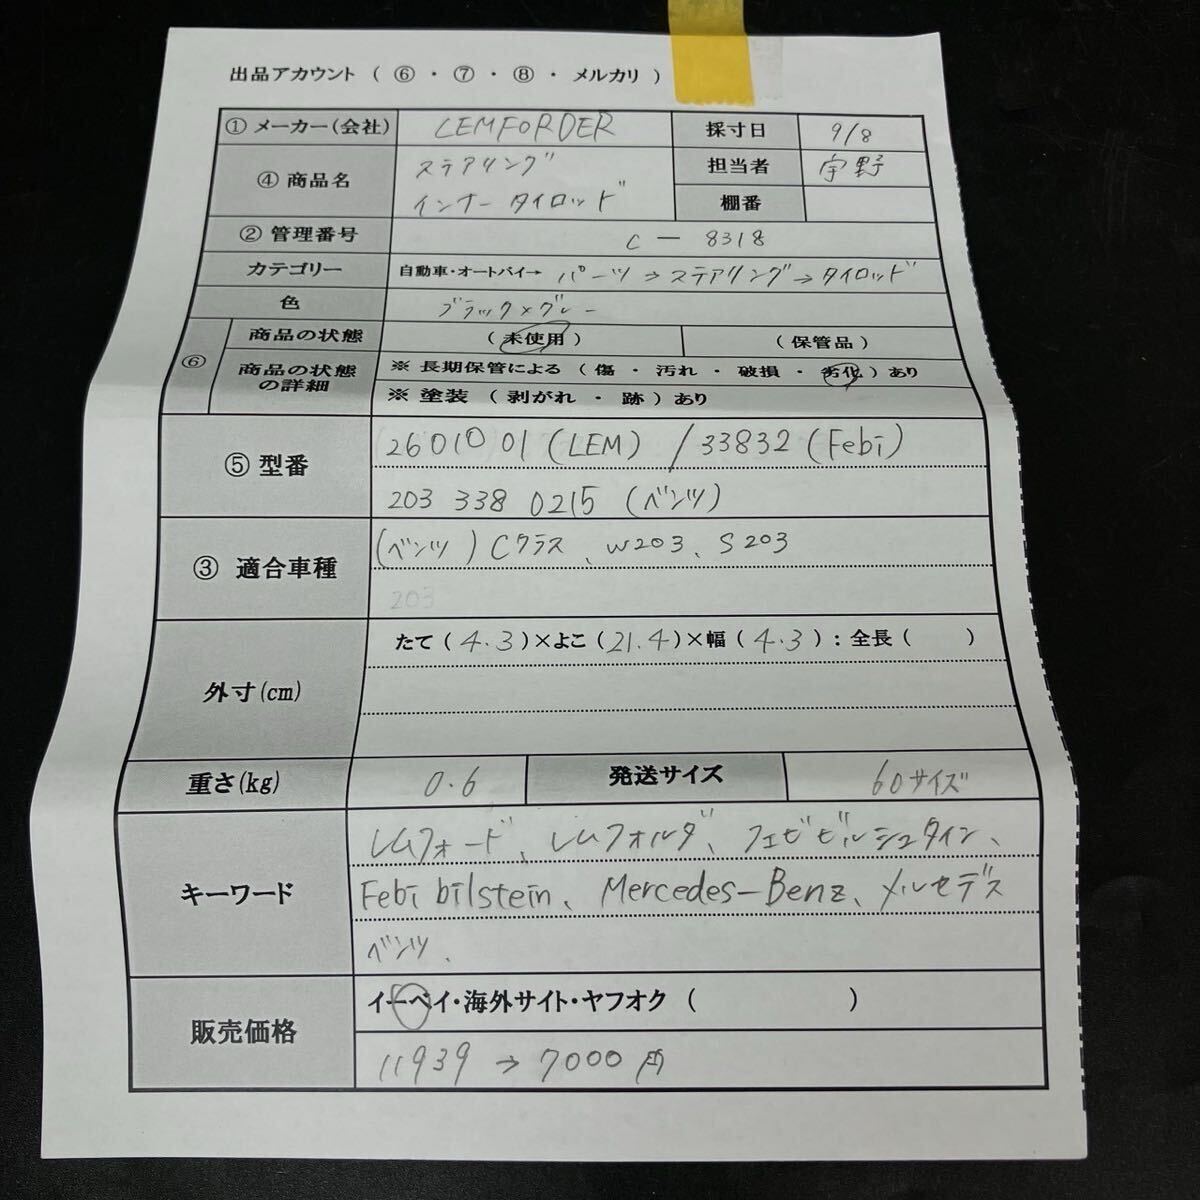 出品アカウント ( ⑥ ・ ⑦ ・ ⑧ ・ メルカリ )
① メーカー(会社) LEMFORDER 採寸日 9/8
④ 商品名 ステアリング 担当者 宇野
インナー タイロッド 棚番
② 管理番号 C - 8318
カテゴリー 自動車・オートバイ→ パーツ → ステアリング → タイロッド
色 ブラック×グレー
⑥ 商品の状態 ( 未使用 ) ( 保管品 )
商品の状態の詳細 ※ 長期保管による ( 傷 ・ 汚れ ・ 破損 ・ 劣化 ) あり
※ 塗装 ( 剥がれ ・ 跡 ) あり
⑤ 型番 2601001 (LEM) / 33832 (Febi)
203 338 0215 (ベンツ)
③ 適合車種 (ベンツ) Cクラス、W203、S203
203
外寸(cm) たて ( 4.3 ) × よこ ( 21.4 ) × 幅 ( 4.3 ) : 全長 ( )
重さ(kg) 0.6 発送サイズ 60サイズ
キーワード レムフォード、レムフォルダ、フェビビルシュタイン、
Febi bilstein、Mercedes-Benz、メルセデス
ベンツ、
販売価格 イーベイ・海外サイト・ヤフオク ( )
11939 → 7000 円